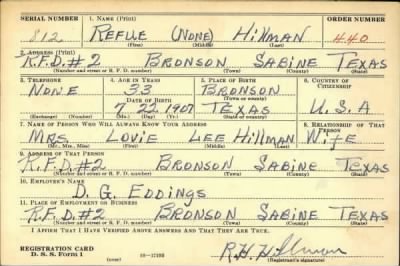 SERIAL NUMBER 1. NAME (Print) ORDER NUMBER
812 REFUE (NONE) HILLMAN 440
(First) (Middle) (Last)
2. ADDRESS (Print)
R.F.D.#2 BRONSON SABINE TEXAS
(Number and street or R. F. D. number) (Town) (County) (State)
3. TELEPHONE 4. AGE IN YEARS 5. PLACE OF BIRTH 6. COUNTRY OF CITIZENSHIP
NONE 33 BRONSON
DATE OF BIRTH (Town or county)
7 22 1907 TEXAS U.S.A
(Exchange) (Number) (Mo.) (Day) (Yr.) (State or country)
7. NAME OF PERSON WHO WILL ALWAYS KNOW YOUR ADDRESS 8. RELATIONSHIP OF THAT PERSON
MRS. LOVIE LEE HILLMAN WIFE
(Mr., Mrs., Miss) (First) (Middle) (Last)
9. ADDRESS OF THAT PERSON
R.F.D.#2 BRONSON SABINE TEXAS
(Number and street or R. F. D. number) (Town) (County) (State)
10. EMPLOYER'S NAME
D. G. EDDINGS
11. PLACE OF EMPLOYMENT OR BUSINESS
R.F.D.#2 BRONSON SABINE TEXAS
(Number and street or R. F. D. number) (Town) (County) (State)
I AFFIRM THAT I HAVE VERIFIED ABOVE ANSWERS AND THAT THEY ARE TRUE.
REGISTRATION CARD
D. S. S. Form 1 (over) R.H. Hillman
(Registrant's signature)